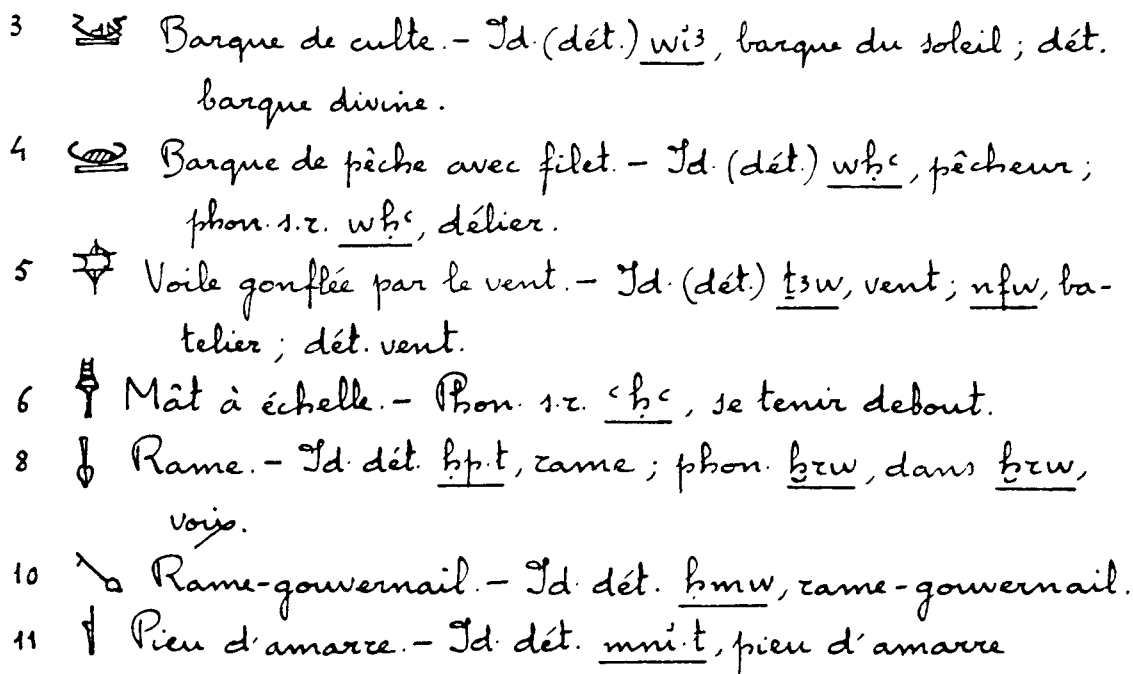 3 Barque de culte. – Id. (dét.) wỉꜣ, barque du soleil ; dét.
barque divine.
4 Barque de pêche avec filet. – Id. (dét.) wḥꜥ, pêcheur ;
phon. s.r. wḥꜥ, délier.
5 Voile gonflée par le vent. – Id. (dét.) ṯꜣw, vent ; nfw, ba-
telier ; dét. vent.
6 Mât à échelle. – Phon. s.r. ꜥḥꜥ, se tenir debout.
8 Rame. – Id. dét. ḥp.t, rame ; phon. ḫrw, dans ḫrw,
voix.
10 Rame-gouvernail. – Id. dét. ḥmw, rame-gouvernail.
11 Pieu d'amarre. – Id. dét. mnỉ.t, pieu d'amarre